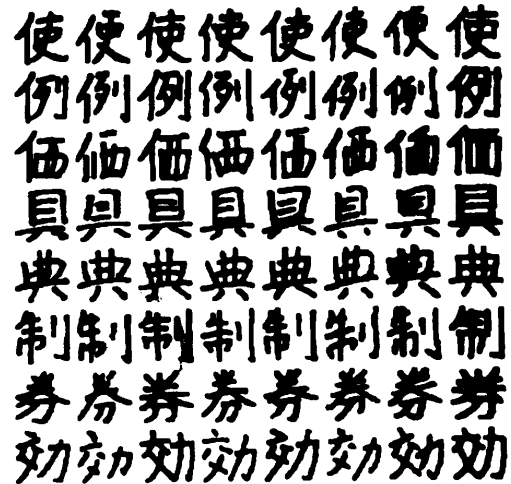 使使使使使使使使
例例例例例例例例
価価価価価価価価
具具具具具具具具
典典典典典典典典
制制制制制制制制
券券券券券券券券
効効効効効効効効